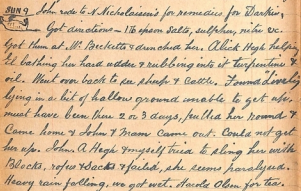 SUN 9 John rode to N. Nicholaisen's for remedies for Darkie,
Got directions - 1 lb epsom salts, sulphur, nitre &c.
Got them at Mr Becketts & drenched her. Alick Hogh helped
bathing her hard udder & rubbing into it turpentine &
oil. Went over back to see sheep & cattle. Found
lying in a bit of hollow ground unable to get up,
must have been there 2 or 3 days, pulled her round &
Came home & John & Mam came out. Could not get
her up. John A. Hogh & myself tried to sling her with
Blocks, ropes & Sacks & failed, she seems paralysed.
Heavy rain falling. we got wet. Harold Olsen for tea.